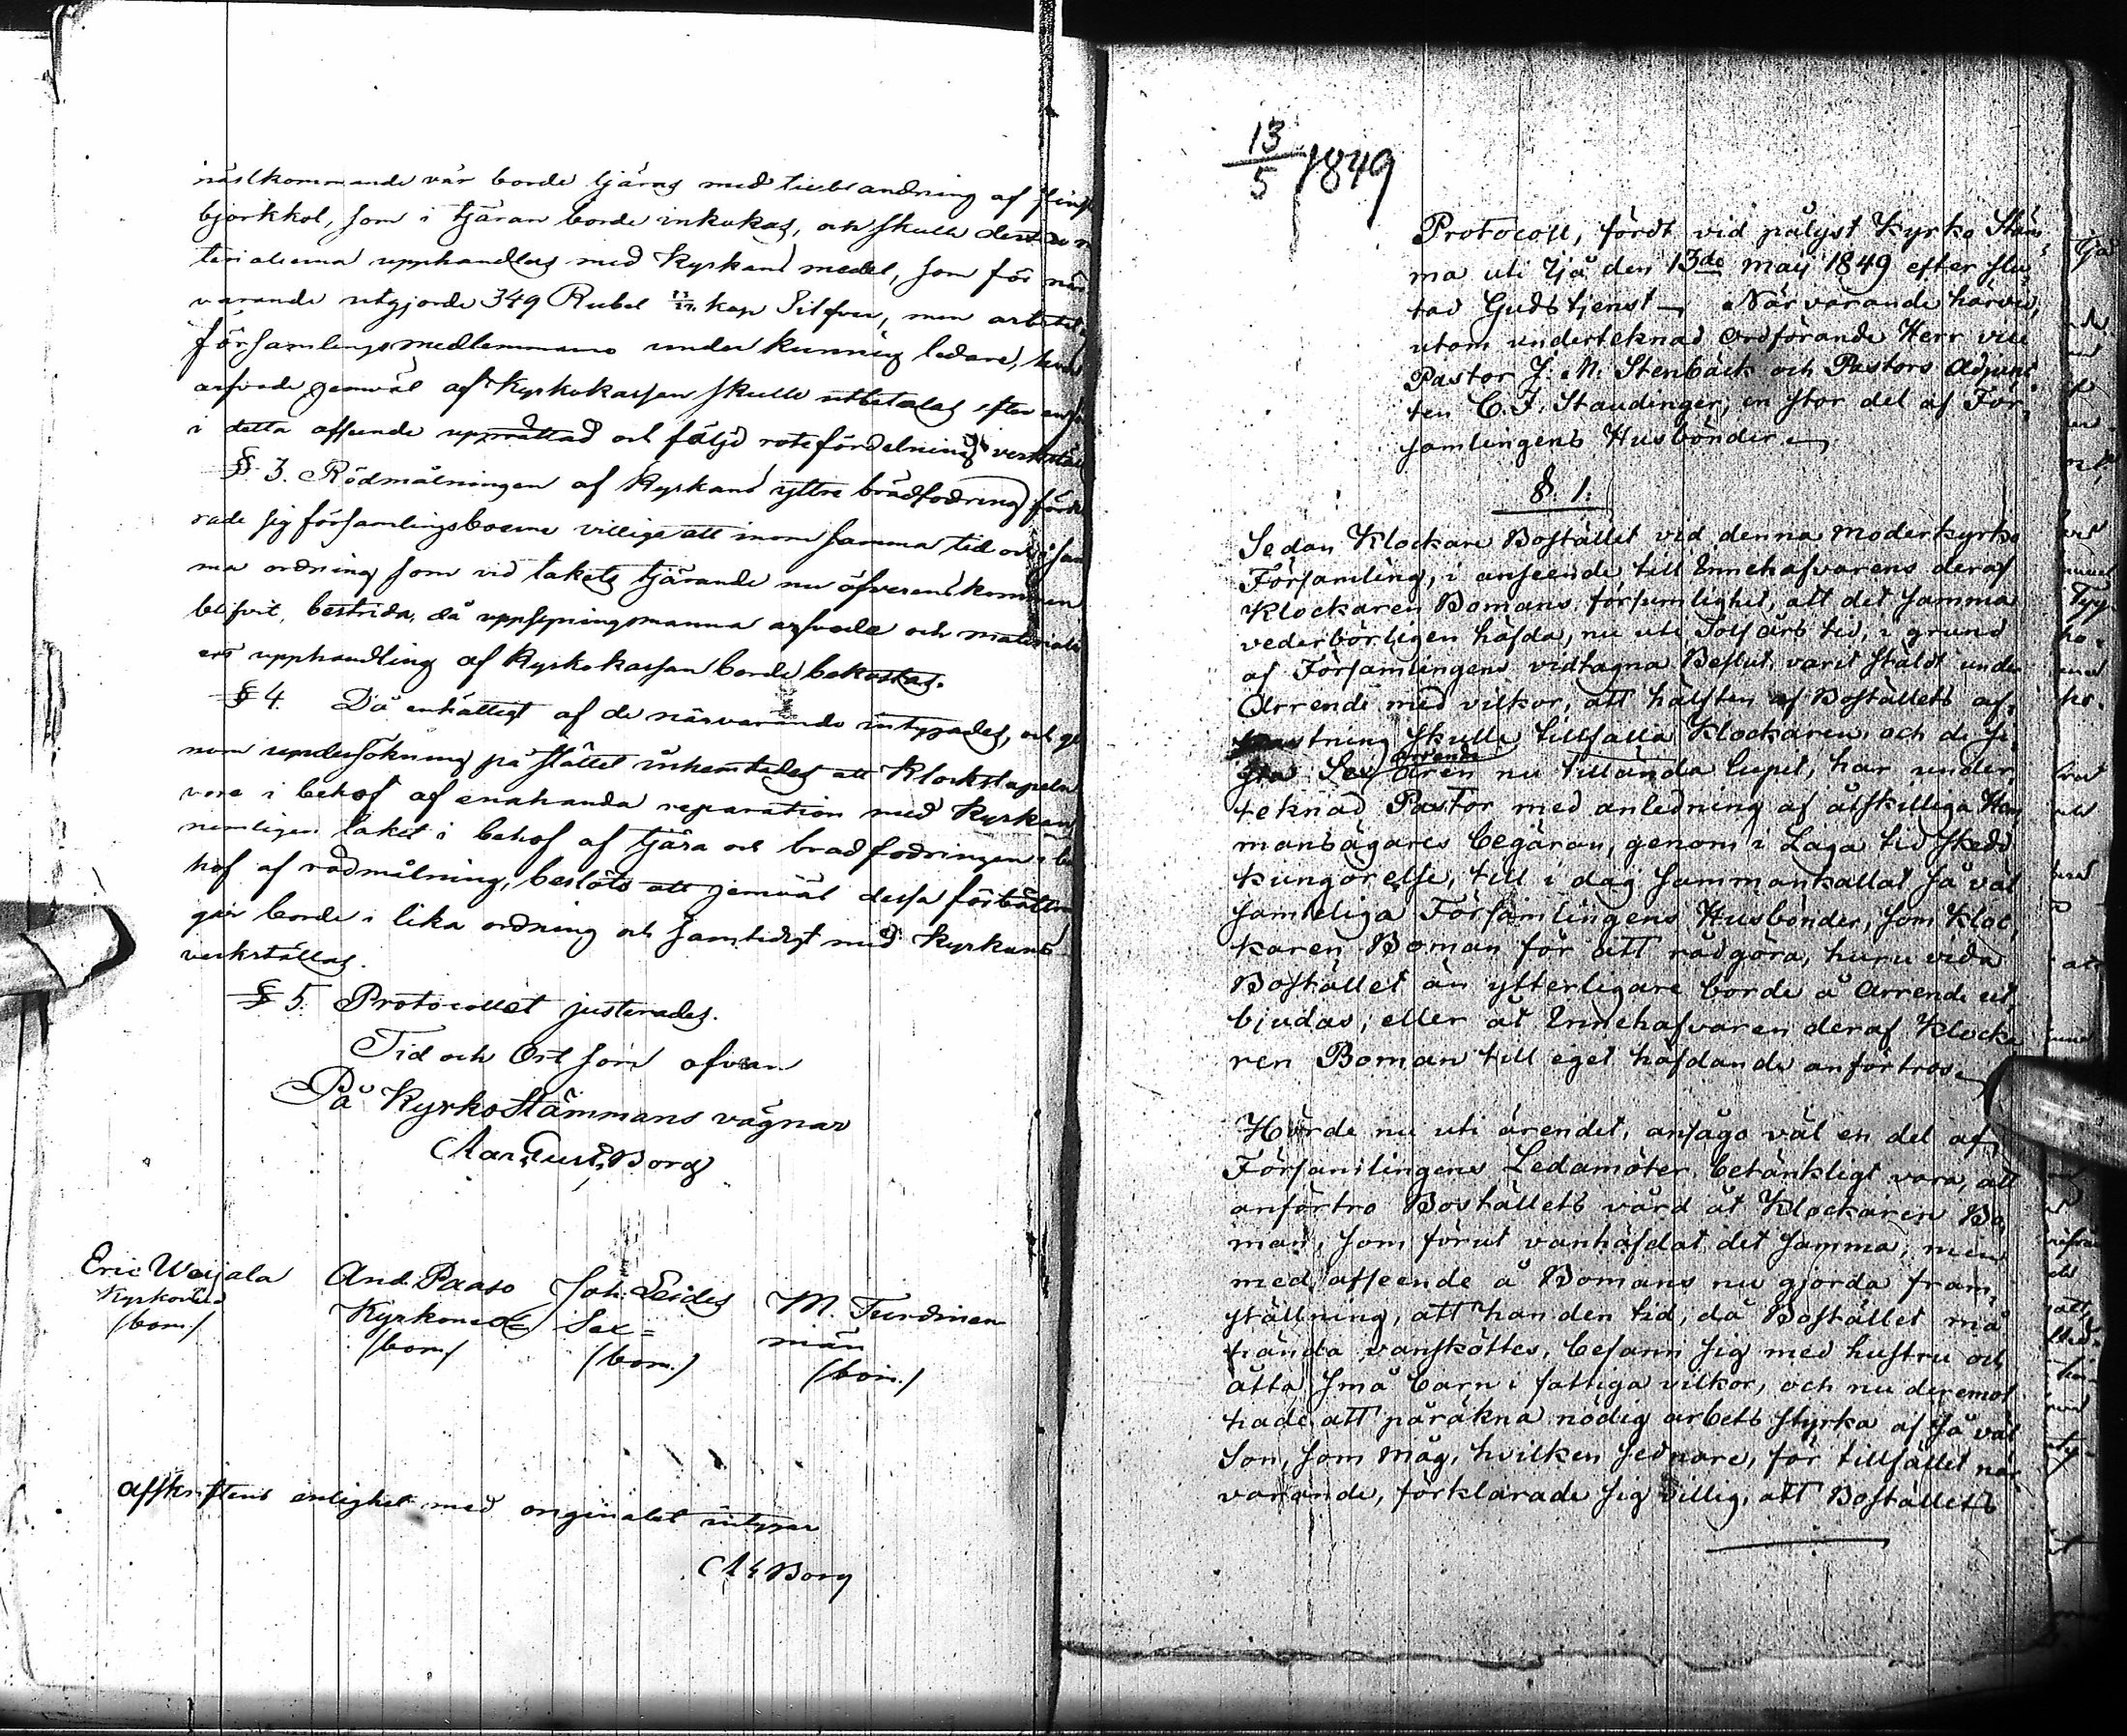 nästkommande vår borde tjäras med tillblandning af fint
björkkol, som i tjäran borde inkokas, och skulle dessa ma
terialierna upphandlas med Kyrkans medel, som för när
varande utgjorde 349 Rubel kop Silfver, men arbetet
församlingsmedlemmarne under kunnig ledare, hvars
arfvode jemväl af Kyrkokassan skulle utbetalas efter
i detta afseende upprättad och följd rotefördelning verkställa
§ 3. Rödmålningen af Kyrkans yttre brädfodring förkla
rade sig församlingsboerne villige att inom samma tid och i sam
ma ordning som vid takets tjärande nu öfverenskommen
blifvit, bestrida, då uppsyningsmanna arfvode och materiali
ers upphandling af Kyrkokassan borde bekostas.
§ 4. Då enhälligt af de närvarande intygades, och ge
nom undersökning på stället inhemtades att Klockstapeln
vore i behof af enahanda reparation med Kyrkan
nemligen taket i behof af tjära och brädfodringen i be
hof af rödmålning, beslöts att jemväl dessa förbättrin
gar borde i lika ordning och samtidigt med Kyrkans
verkställas.
§ 5. Protocollet justerades.
Tid och Ort som ofvan
På KyrkoStämmans vägnar
Aar. Gust. Borg
Eric Weijala And. Paaso Joh. Leides M. Turdinen
Kyrkovärd Kyrkovärd Sex= män
/bom./ /bom/ /bom./ /bom./
Afskriftens enlighet med originalet intygar
A G Borg
13/5 1849
Protocoll, fördt vid pålyst Kyrko Stäm¬
ma uti Ijå den 13de maij 1849 efter slu¬
tad Gudstjenst – Närvarande härvid,
utom undertecknad Ordförande Herr vice
Pastor J. M. Stenbäck och Pastors Adjunc
ten C. J. Staudinger, en stor del af För¬
samlingens Husbönder –
§. 1.
Sedan Klockare Bostället vid denna moderkyrko
Församling, i anseende till Innehafvarens deraf
Klockaren Bomans försumlighet, att det samma
vederbörligen häfda, nu uti Tolf års tid, i grund
af Församlingens vidtagna Beslut, varit stäldt under
Arrende med vilkor, att hälften af Boställets af¬
kastning skulle tillfalla Klockaren, och de si¬
sta Sex arrende åren nu tilländalupit, har under¬
teknad Pastor med anledning af åtskilliga Hem
mansägares begäran, genom i Laga tid skedd
kungörelse, till i dag sammankallat så väl
samteliga Församlingens Husbönder, som Kloc¬
karen Boman för att rådgöra, huru vida
Bostället än ytterligare borde å Arrende ut¬
bjudas, eller åt Innehafvaren deraf Klocka
ren Boman till eget häfdande anförtros. –
Hörde nu uti ärendet, ansågo väl en del af
Församlingens Ledamöter betänkligt vara, att
anförtro Boställets vård åt Klockaren Bo¬
man, som förut vanhäfdat det samma, men
med afseende å Bomans nu gjorda fram¬
ställning, att han den tid, då Bostället må
hända vansköttes, befann sig med hustru och
åtta små barn i fattiga vilkor, och nu deremot
hade att påräkna nödig arbets styrka af så väl
Son, som måg, hvilken sednare, för tillfället när
varande, förklarade sig villig, att Boställets